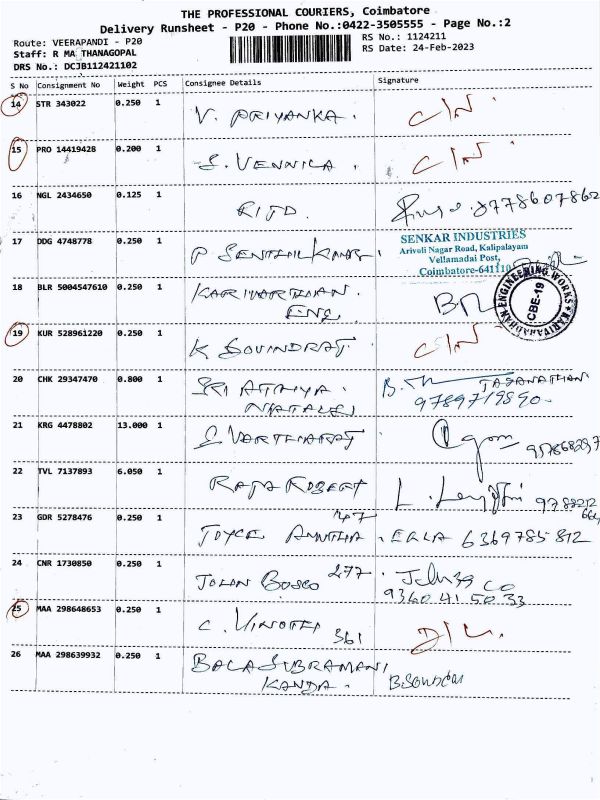 THE PROFESSIONAL COURIERS, Coimbatore
Delivery Runsheet - P20 - Phone No.:0422-3505555 - Page No.:2
Route: VEERAPANDI - P20
RS No.: 1124211
Staff: R MA THANAGOPAL
RS Date: 24-Feb-2023
DRS No.: DCJB112421102
S No Consignment No Weight PCS Consignee Details Signature
14 STR 343022 0.250 1 V. PRIYANKA. C/N
15 PRO 14419428 0.200 1 S. VENNILA. C/N
16 NGL 2434650 0.125 1 8778607862
17 DDG 4748778 0.250 1 P SENTHIL KUMAR.
SENKAR INDUSTRIES
Ariveli Nagar Road, Kalipalayam
Vellamadai Post,
Coimbatore-641110
18 BLR 5004547610 0.250 1 KARIVARTHAN.
ENG.
ENGINEERING WORKS
CBE-19
19 KUR 528961220 0.250 1 K GOVINDRAJ C/N
20 CHK 29347470 0.800 1 SRI
9789719890
21 KRG 4478802 13.000 1 S VARTHARAJ
22 TVL 7137893 6.050 1 RAJA ROBERT
23 GDR 5278476 0.250 1 JOYCE 47 6369785812
24 CNR 1730850 0.250 1 BOSCO 277
9360 41 50 33
25 MAA 298648653 0.250 1 C. VINOTH 361 D/L
26 MAA 298639932 0.250 1 BALASUBRAMANI
KANDA.